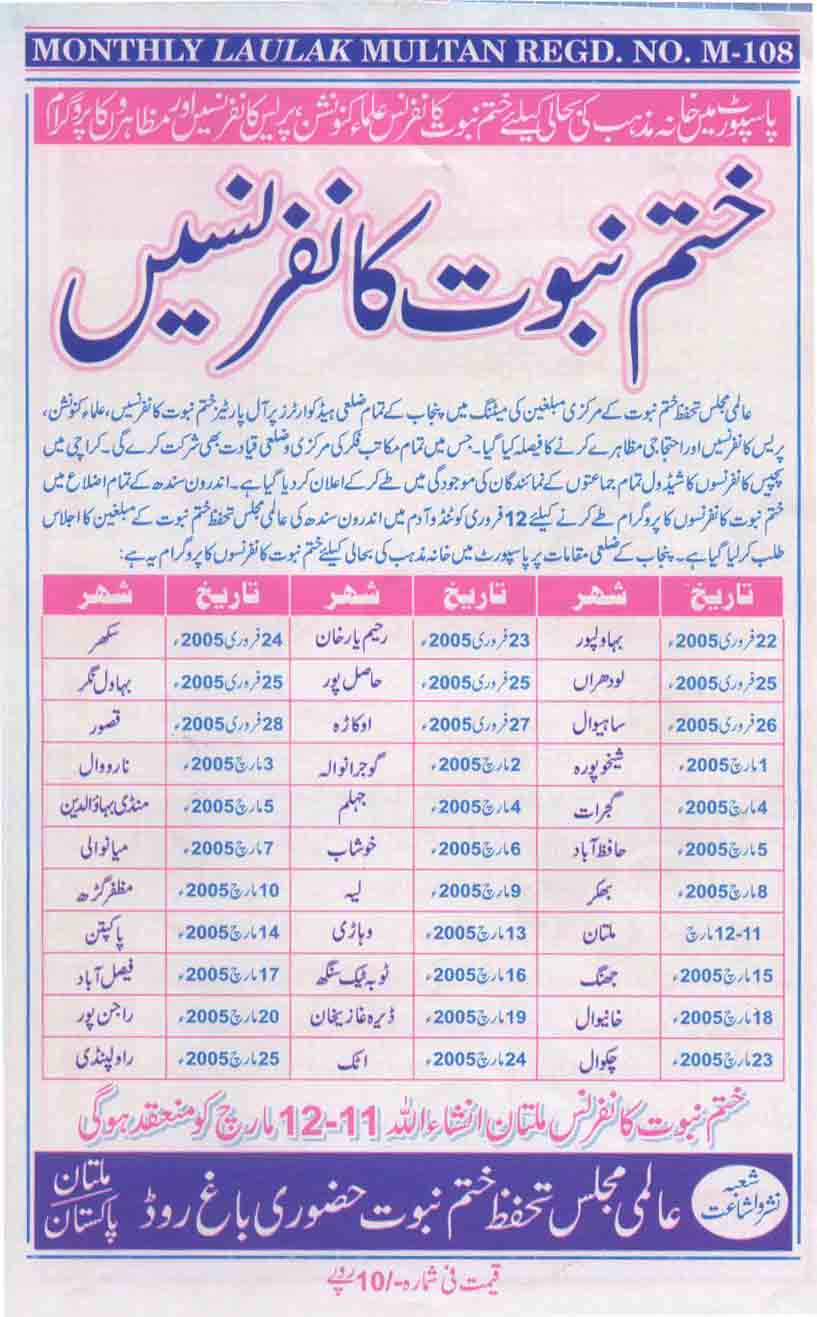 MONTHLY LAULAK MULTAN REGD. NO. M-108
پاسپورٹ میں خانہ مذہب کی بحالی کیلئے ختم نبوت کانفرنس علماء کنونشن، پریس کانفرنسیں اور مظاہروں کا پروگرام
ختم نبوت کانفرنسیں
عالمی مجلس تحفظ ختم نبوت کے مرکزی مبلغین کی میٹنگ میں پنجاب کے تمام ضلعی ہیڈ کوارٹرز پر آل پارٹیز ختم نبوت کانفرنسیں، علماء کنونشن،
پریس کانفرنسیں اور احتجاجی مظاہرے کرنے کا فیصلہ کیا گیا۔ جس میں تمام مکاتب فکر کی مرکزی و ضلعی قیادت بھی شرکت کرے گی۔ کراچی میں
پچیس کانفرنسوں کا شیڈول تمام جماعتوں کے نمائندگان کی موجودگی میں طے کر کے اعلان کر دیا گیا ہے۔ اندرون سندھ کے تمام اضلاع میں
ختم نبوت کانفرنسوں کا پروگرام طے کرنے کیلئے 12 فروری کو ٹنڈو آدم میں اندرون سندھ کی عالمی مجلس تحفظ ختم نبوت کے مبلغین کا اجلاس
طلب کر لیا گیا ہے۔ پنجاب کے ضلعی مقامات پر پاسپورٹ میں خانہ مذہب کی بحالی کیلئے ختم نبوت کانفرنسوں کا پروگرام یہ ہے:
تاریخ شہر تاریخ شہر تاریخ شہر
22 فروری 2005ء بہاولپور 23 فروری 2005ء رحیم یار خان 24 فروری 2005ء سکھر
25 فروری 2005ء لودھراں 25 فروری 2005ء حاصل پور 25 فروری 2005ء بہاول نگر
26 فروری 2005ء ساہیوال 27 فروری 2005ء اوکاڑہ 28 فروری 2005ء قصور
1 مارچ 2005ء شیخوپورہ 2 مارچ 2005ء گوجرانوالہ 3 مارچ 2005ء نارووال
4 مارچ 2005ء گجرات 4 مارچ 2005ء جہلم 5 مارچ 2005ء منڈی بہاؤالدین
5 مارچ 2005ء حافظ آباد 6 مارچ 2005ء خوشاب 7 مارچ 2005ء میانوالی
8 مارچ 2005ء بھکر 9 مارچ 2005ء لیہ 10 مارچ 2005ء مظفر گڑھ
11-12 مارچ ملتان 13 مارچ 2005ء وہاڑی 14 مارچ 2005ء پاکپتن
15 مارچ 2005ء جھنگ 16 مارچ 2005ء ٹوبہ ٹیک سنگھ 17 مارچ 2005ء فیصل آباد
18 مارچ 2005ء خانیوال 19 مارچ 2005ء ڈیرہ غازیخان 20 مارچ 2005ء راجن پور
23 مارچ 2005ء چکوال 24 مارچ 2005ء اٹک 25 مارچ 2005ء راولپنڈی
ختم نبوت کانفرنس ملتان انشاء اللہ 11-12 مارچ کو منعقد ہوگی
شعبہ نشرواشاعت عالمی مجلس تحفظ ختم نبوت حضوری باغ روڈ ملتان پاکستان
قیمت فی شمارہ -/10 روپے